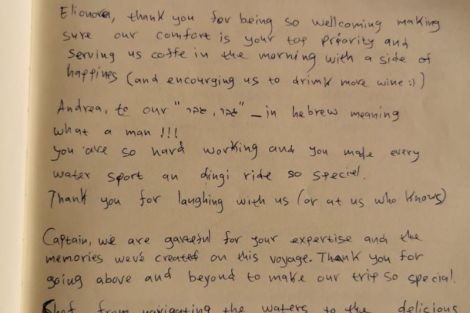 Elionora, thank you for being so wellcoming making
sure our comfort is your top priority and
serving us coffe in the morning with a side of
happines (and encourging us to drink more wine :)
Andrea, to our "גבר, גבר" - in hebrew meaning
what a man!!!
you are so hard working and you made every
water sport an dingi ride so special.
Thank you for laughing with us (or at us who knows)
Captain, we are gareful for your expertise and the
memories we've created on this voyage. Thank you for
going above and beyond to make our trip so special.
Chef, from navigating the waters to the delicious